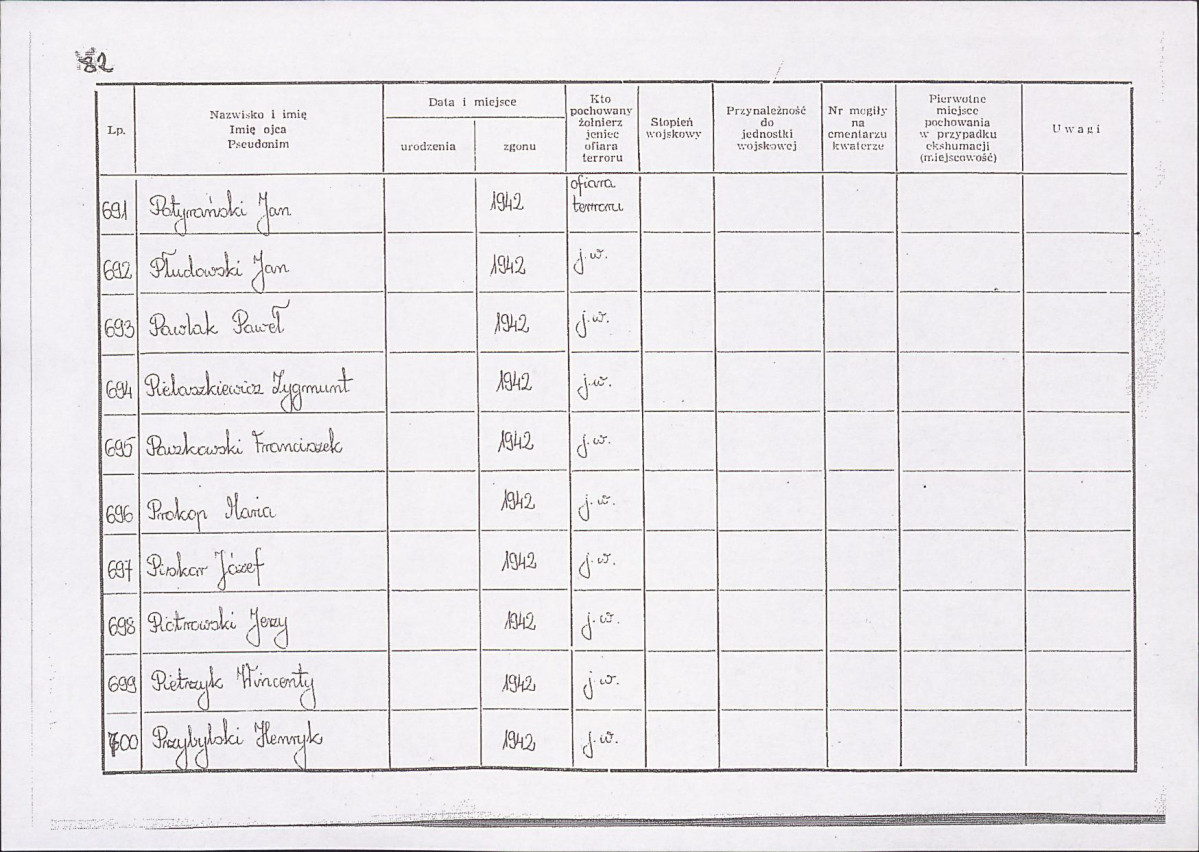 82
Lp.
Nazwisko i imię
Imię ojca
Pseudonim
Data i miejsce
urodzenia
zgonu
Kto
pochowany
żołnierz
jeniec
ofiara
terroru
Stopień
wojskowy
Przynależność
do
jednostki
wojskowej
Nr mogiły
na
cmentarzu
kwaterze
Pierwotne
miejsce
pochowania
w przypadku
ekshumacji
(miejscowość)
Uwagi
691 Potyrański Jan 1942 ofiara
terroru
692 Płudowski Jan 1942 j.w.
693 Pawlak Paweł 1942 j.w.
694 Pielaszkiewicz Zygmunt 1942 j.w.
695 Paszkowski Franciszek 1942 j.w.
696 Prokop Maria 1942 j.w.
697 Piskor Józef 1942 j.w.
698 Piotrowski Jerzy 1942 j.w.
699 Pietrzyk Wincenty 1942 j.w.
700 Przybylski Henryk 1942 j.w.